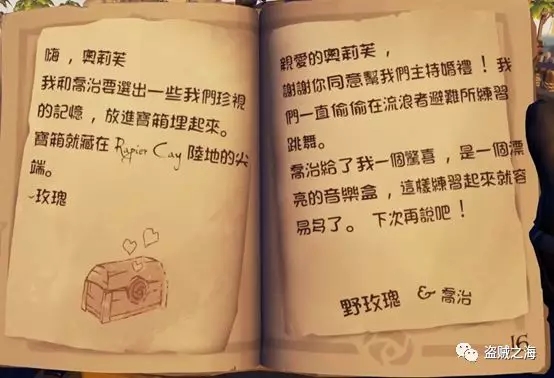 嗨，奧莉芙
我和喬治要選出一些我們珍視
的記憶，放進寶箱埋起來。
寶箱就藏在 Rapier Cay 陸地的尖
端。
~玫瑰
親愛的奧莉芙，
謝謝你同意幫我們主持婚禮！我
們一直偷偷在流浪者避難所練習
跳舞。
喬治給了我一個驚喜，是一個漂
亮的音樂盒，這樣練習起來就容
易多了。下次再說吧！
野玫瑰 & 喬治
16
盗贼之海